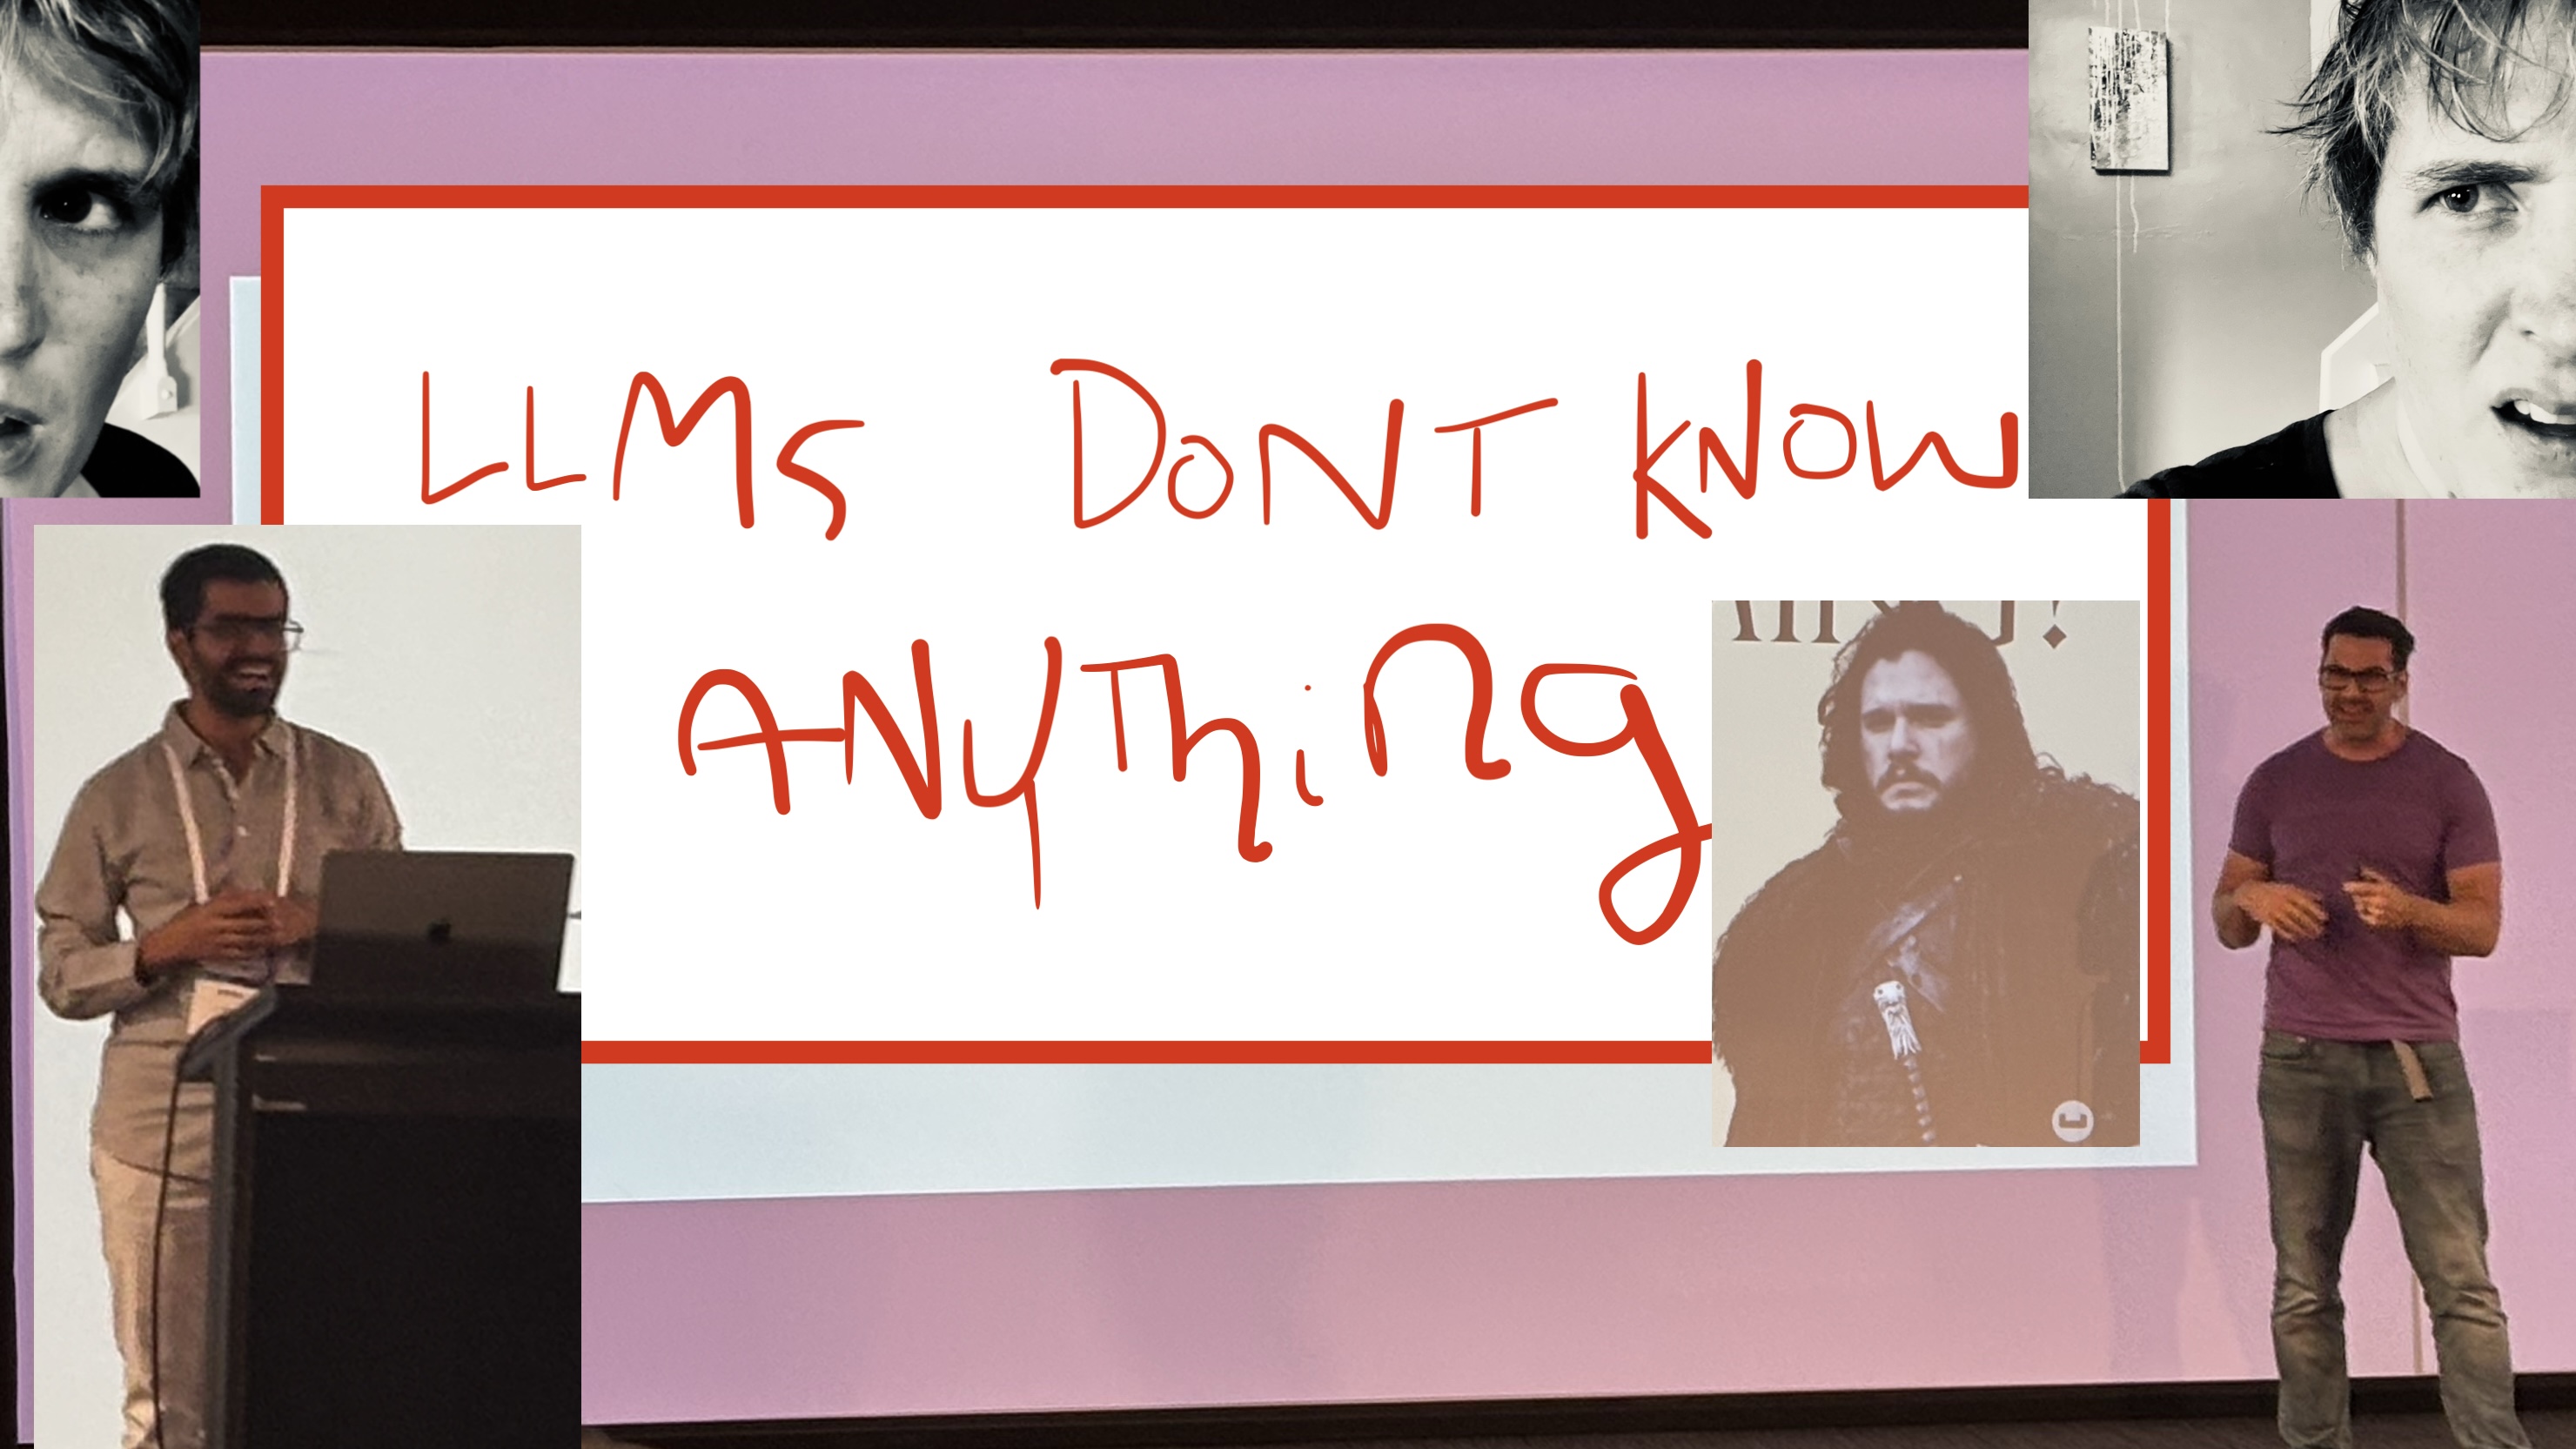 LLMs DONT KNOW
ANYThing